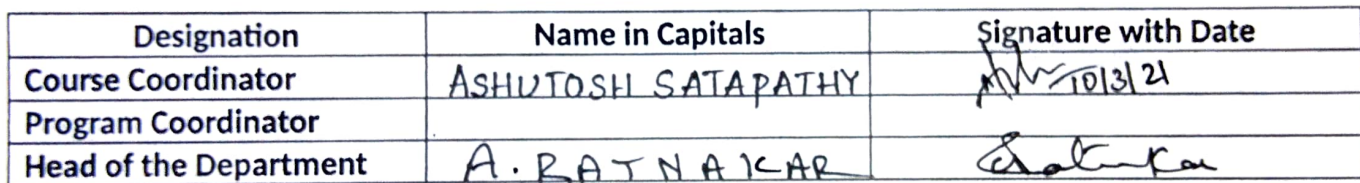 Designation Name in Capitals Signature with Date
Course Coordinator ASHUTOSH SATAPATHY 10/3/21
Program Coordinator
Head of the Department A. RATNAKAR